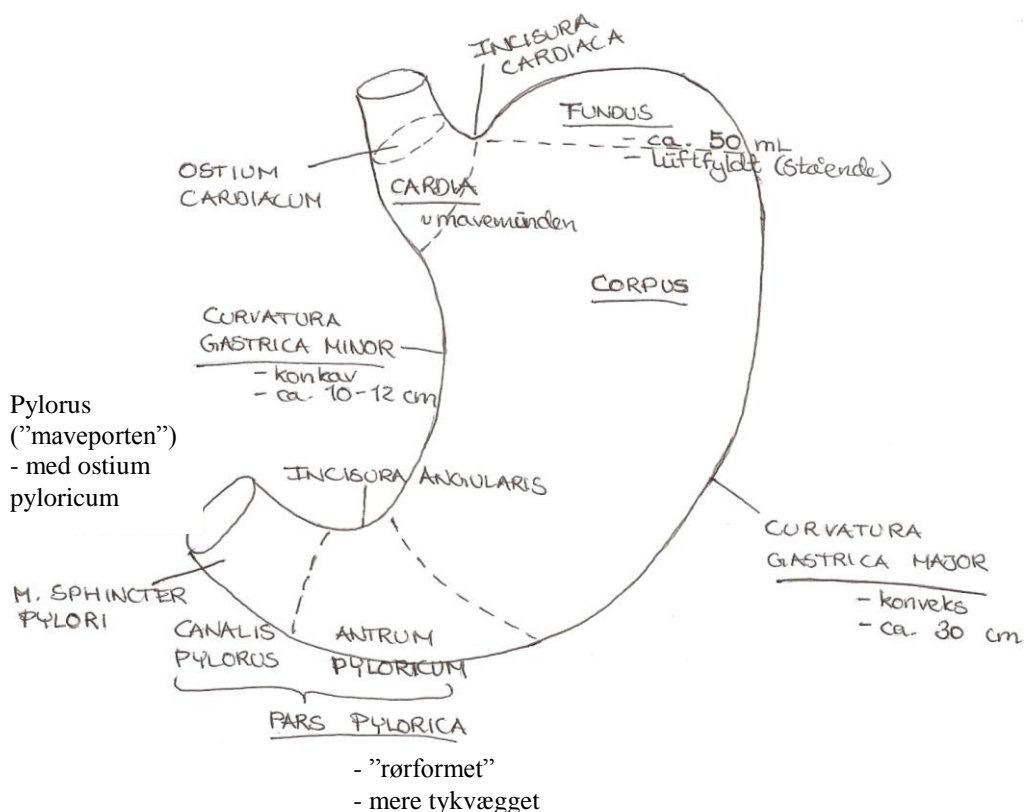 INCISURA
CARDIACA
FUNDUS
- ca. 50 mL
- luftfyldt (stående)
OSTIUM
CARDIACUM
CARDIA
~ mavemunden
CORPUS
CURVATURA
GASTRICA MINOR
- konkav
- ca. 10-12 cm
Pylorus
(”maveporten”)
- med ostium
pyloricum
INCISURA ANGULARIS
CURVATURA
GASTRICA MAJOR
- konveks
- ca. 30 cm
M. SPHINCTER
PYLORI
CANALIS
PYLORUS
ANTRUM
PYLORICUM
PARS PYLORICA
- ”rørformet”
- mere tykvægget